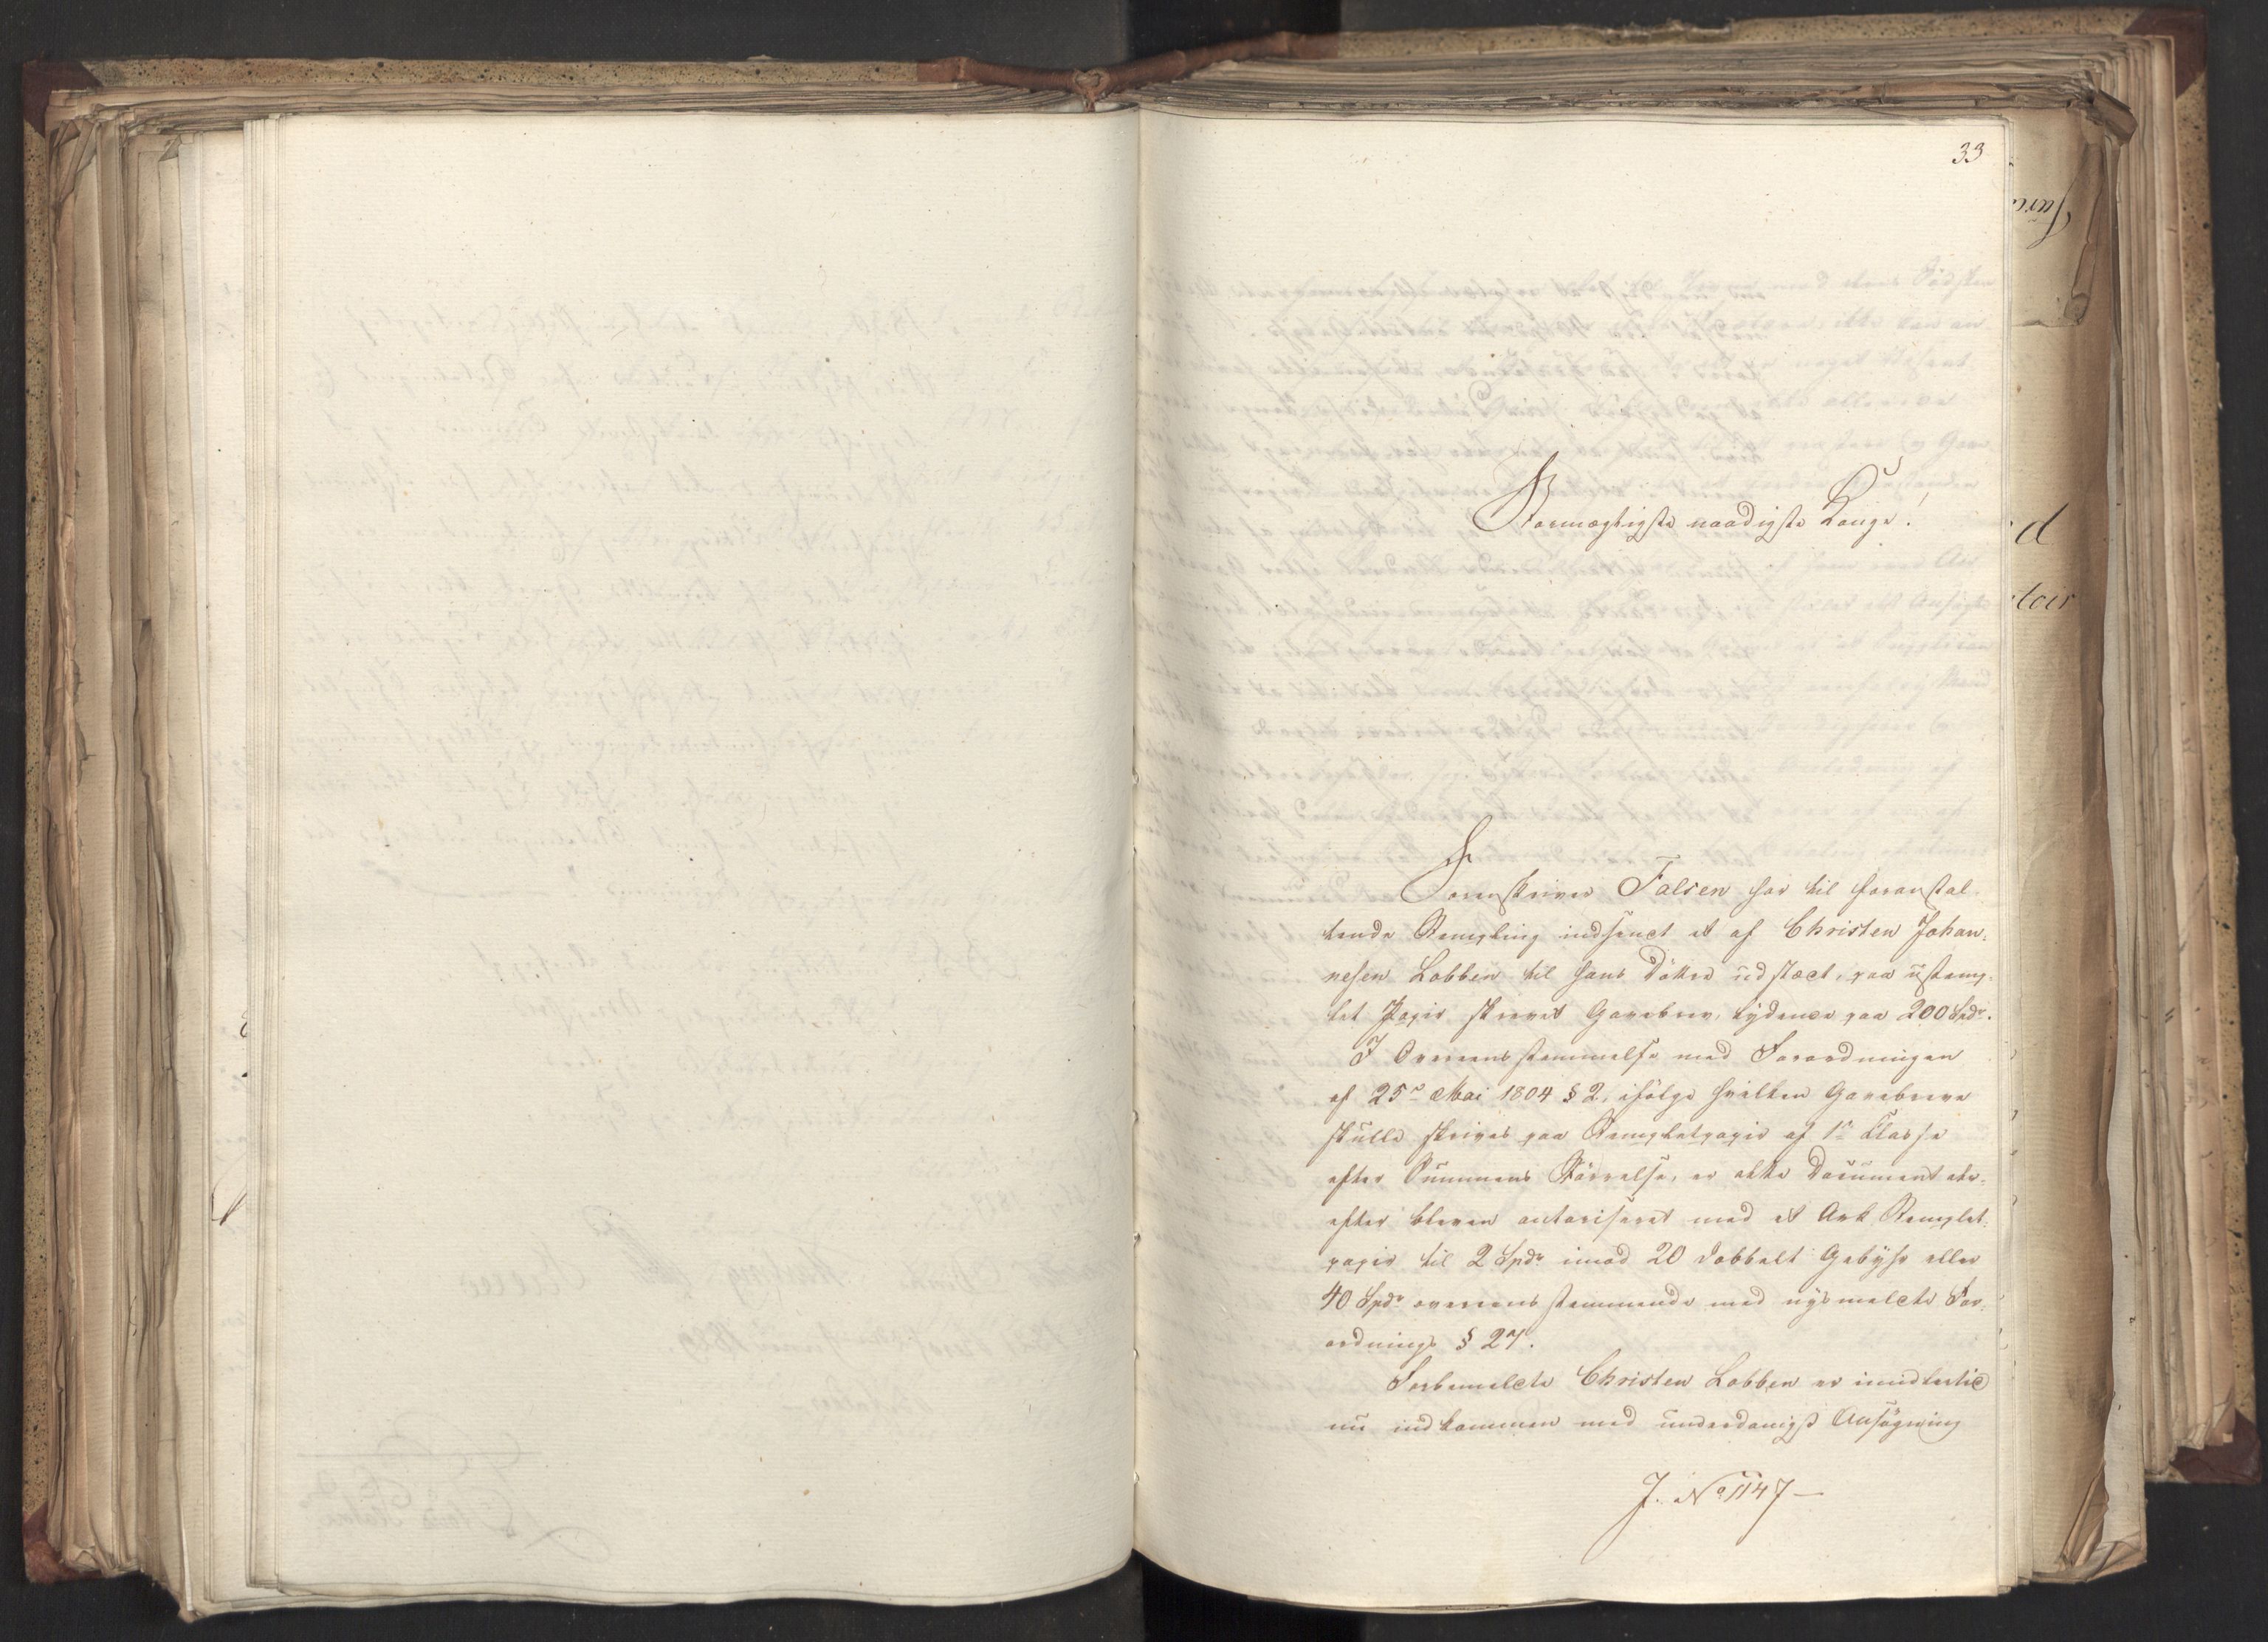 33
Stormægtigste naadigste Konge!
Sorenskriver Falsen har til foranstal-
tende Stempling indsendt et af Christen Johan-
nesen Lobben til hans Døttre udstædt, paa ustemp-
let Papir skrevet Gavebrev, lydende paa 200 Spdr.
I Overeensstemmelse med Forordningen
af 25de Mai 1804 § 2, ifølge hvilken Gavebreve
skulle skrives paa Stempletpapir af 1ste Classe
efter Summens Størrelse, er dette Document der-
efter bleven autoriseret med et Ark Stemplet-
papir til 2 Spdr imod 20 dobbelt Gebyhr eller
40 Spdr overeensstemmende med nysmeldte For-
ordnings § 27.
Forbemeldte Christen Lobben er imidlertid
nu indkommen med underdanigst Ansøgning
J. No 1147 —